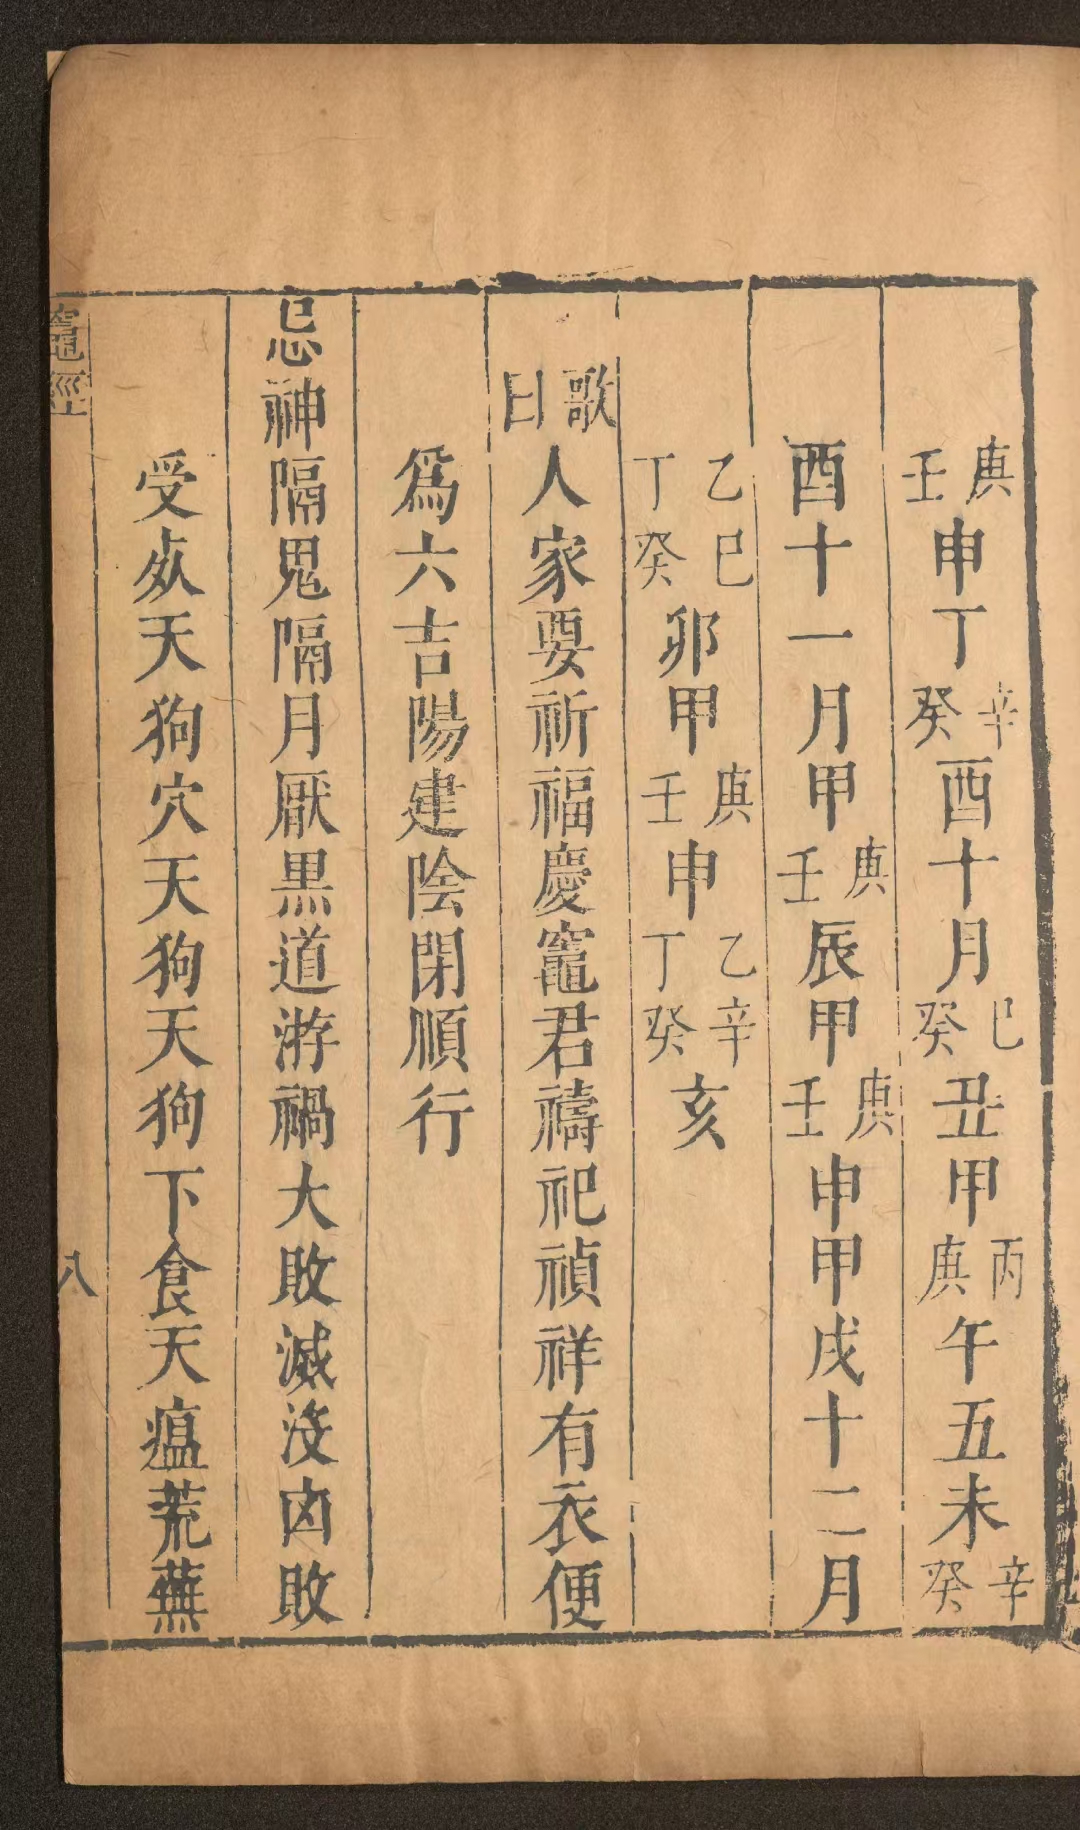 庚壬申丁辛癸酉十月巳癸丑甲丙庚午五未辛癸
酉十一月甲庚壬辰甲庚壬申甲戌十二月
乙巳丁癸卯甲庚壬申乙辛丁癸亥
歌曰人家要祈福慶竈君禱祀禎祥有衣便
爲六吉陽建陰閉順行
忌神隔鬼隔月厭黒道游禍大敗滅沒凶敗
受死天狗穴天狗天狗下食天瘟荒蕪
竈經
八